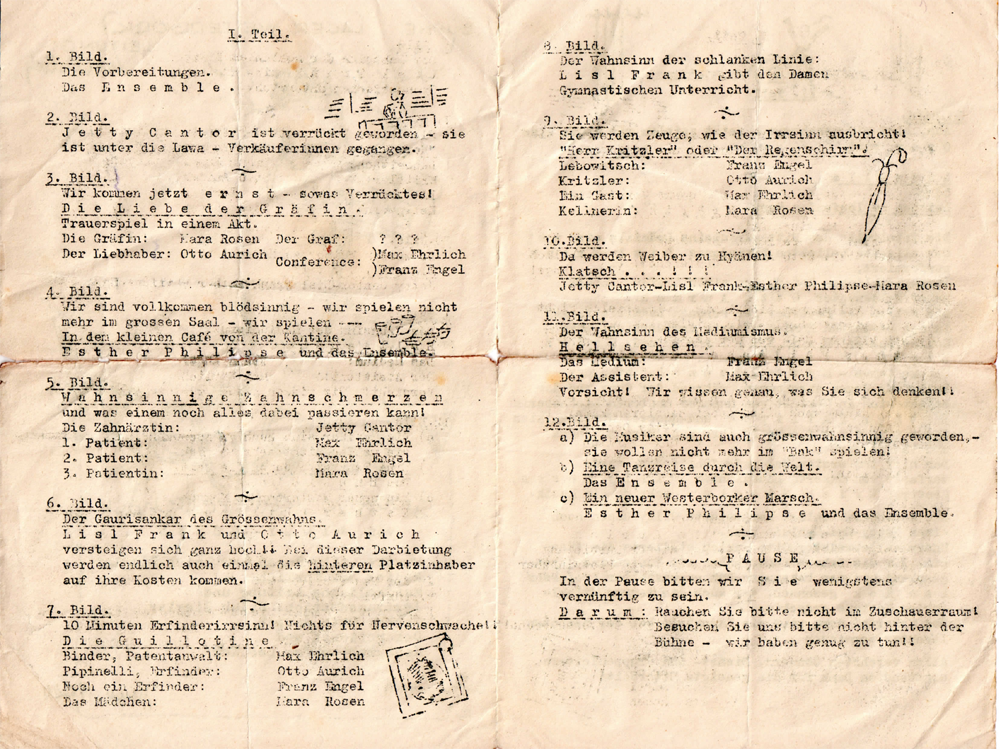 I. Teil.
1. Bild.
Die Vorbereitungen.
Das Ensemble.
2. Bild.
Jetty Cantor ist verrückt geworden - sie
ist unter die Lawa - Verkäuferinnen gegangen.
3. Bild.
Wir kommen jetzt ernst - sowas Verrücktes!
Die Liebe der Gräfin.
Trauerspiel in einem Akt.
Die Gräfin: Mara Rosen Der Graf: ? ? ?
Der Liebhaber: Otto Aurich Conference: )Max Ehrlich
)Franz Engel
4. Bild.
Wir sind vollkommen blödsinnig - wir spielen nicht
mehr im grossen Saal - wir spielen ---
In dem kleinen Café von der Kantine.
Esther Philipse und das Ensemble.
5. Bild.
Wahnsinnige Zahnschmerzen
und was einem noch alles dabei passieren kann!
Die Zahnärztin: Jetty Cantor
1. Patient: Max Ehrlich
2. Patient: Franz Engel
3. Patientin: Mara Rosen
6. Bild.
Der Gaurisankar des Grössenwahns.
Lisl Frank und Otto Aurich
versteigen sich ganz hoch!! Bei dieser Darbietung
werden endlich auch einmal die hinteren Platzinhaber
auf ihre Kosten kommen.
7. Bild.
10 Minuten Erfinderirrsinn! Nichts für Nervenschwache!!
Die Guillotine
Binder, Patentanwalt: Max Ehrlich
Pipinelli, Erfinder: Otto Aurich
Noch ein Erfinder: Franz Engel
Das Mädchen: Mara Rosen
8. Bild.
Der Wahnsinn der schlanken Linie:
Lisl Frank gibt den Damen
Gymnastischen Unterricht.
9. Bild.
Sie werden Zeuge, wie der Irrsinn ausbricht!
"Herr Kritzler" oder "Der Regenschirm".
Lebowitsch: Franz Engel
Kritzler: Otto Aurich
Ein Gast: Max Ehrlich
Kellnerin: Mara Rosen
10.Bild.
Da werden Weiber zu Hyänen!
Klatsch . . . ! ! !
Jetty Cantor-Lisl Frank-Esther Philipse-Mara Rosen
11.Bild.
Der Wahnsinn des Mediumismus.
Hellsehen.
Das Medium: Franz Engel
Der Assistent: Max Ehrlich
Vorsicht! Wir wissen genau, was Sie sich denken!!
12.Bild.
a) Die Musiker sind auch grössenwahnsinnig geworden,-
sie wollen nicht mehr im "Bak" spielen!
b) Eine Tanzreise durch die Welt.
Das Ensemble.
c) Ein neuer Westerborker Marsch.
Esther Philipse und das Ensemble.
PAUSE
In der Pause bitten wir Sie wenigstens
vernünftig zu sein.
Darum: Rauchen Sie bitte nicht im Zuschauerraum!
Besuchen Sie uns bitte nicht hinter der
Bühne - wir haben genug zu tun!!